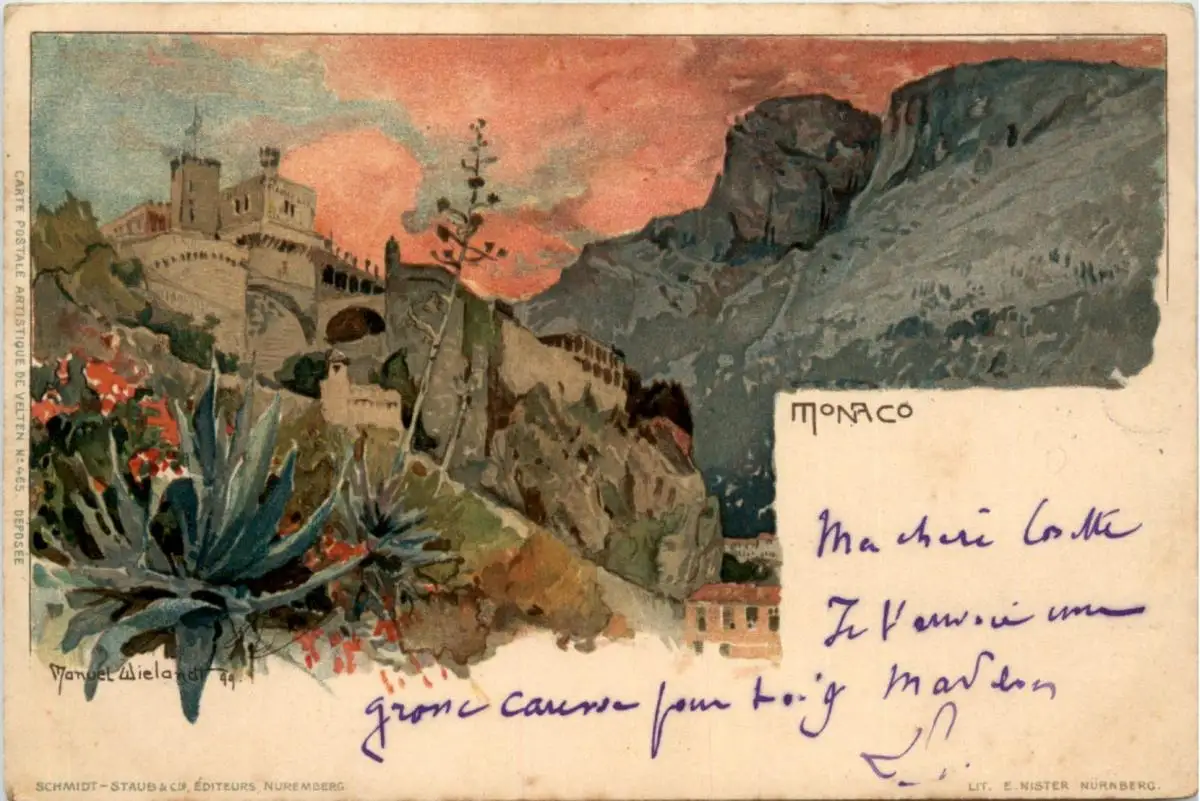 MONACO
Ma chère Cosette
Je t'envoie une
grosse caresse pour toi
Manuel Wielandt 99.
CARTE POSTALE ARTISTIQUE DE VELTEN Nº 465. DEPOSÉE
SCHMIDT-STAUB & Cie, ÉDITEURS, NUREMBERG
LIT. E. NISTER NÜRNBERG.